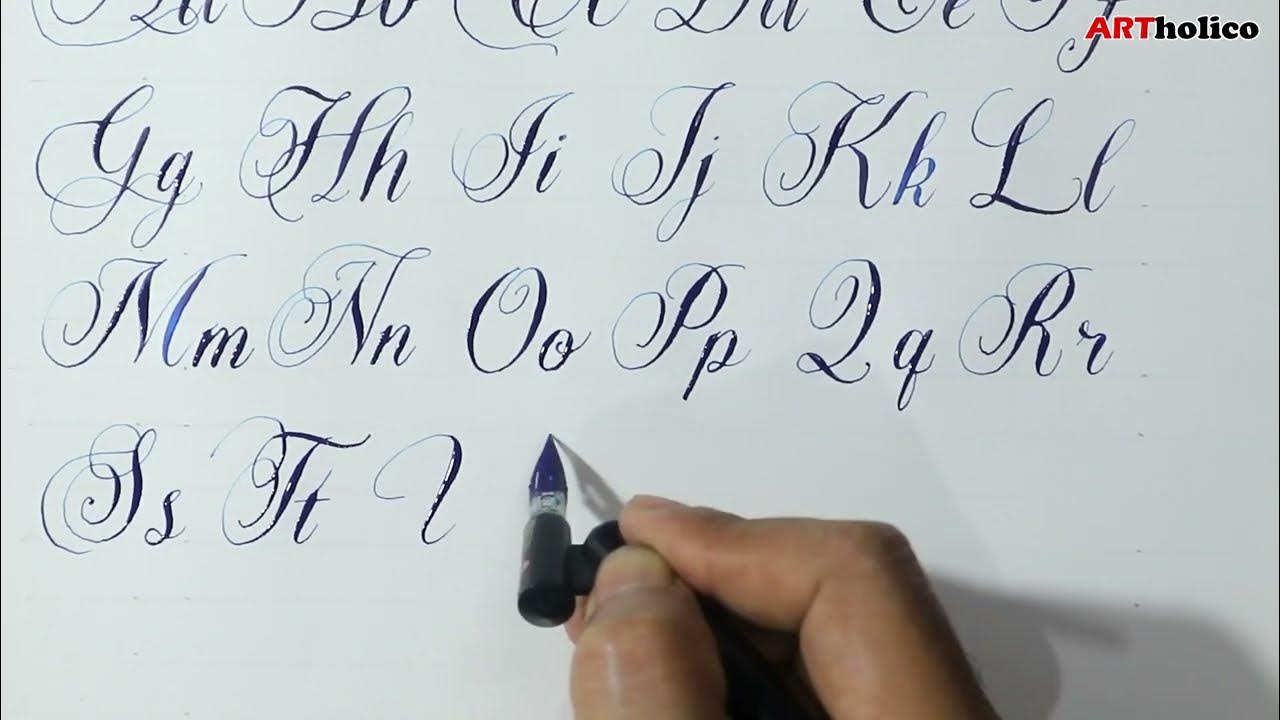 Aa Bb Cc Dd Ee Ff
ARTholico
Gg Hh Ii Jj Kk Ll
Mm Nn Oo Pp Qq Rr
Ss Tt